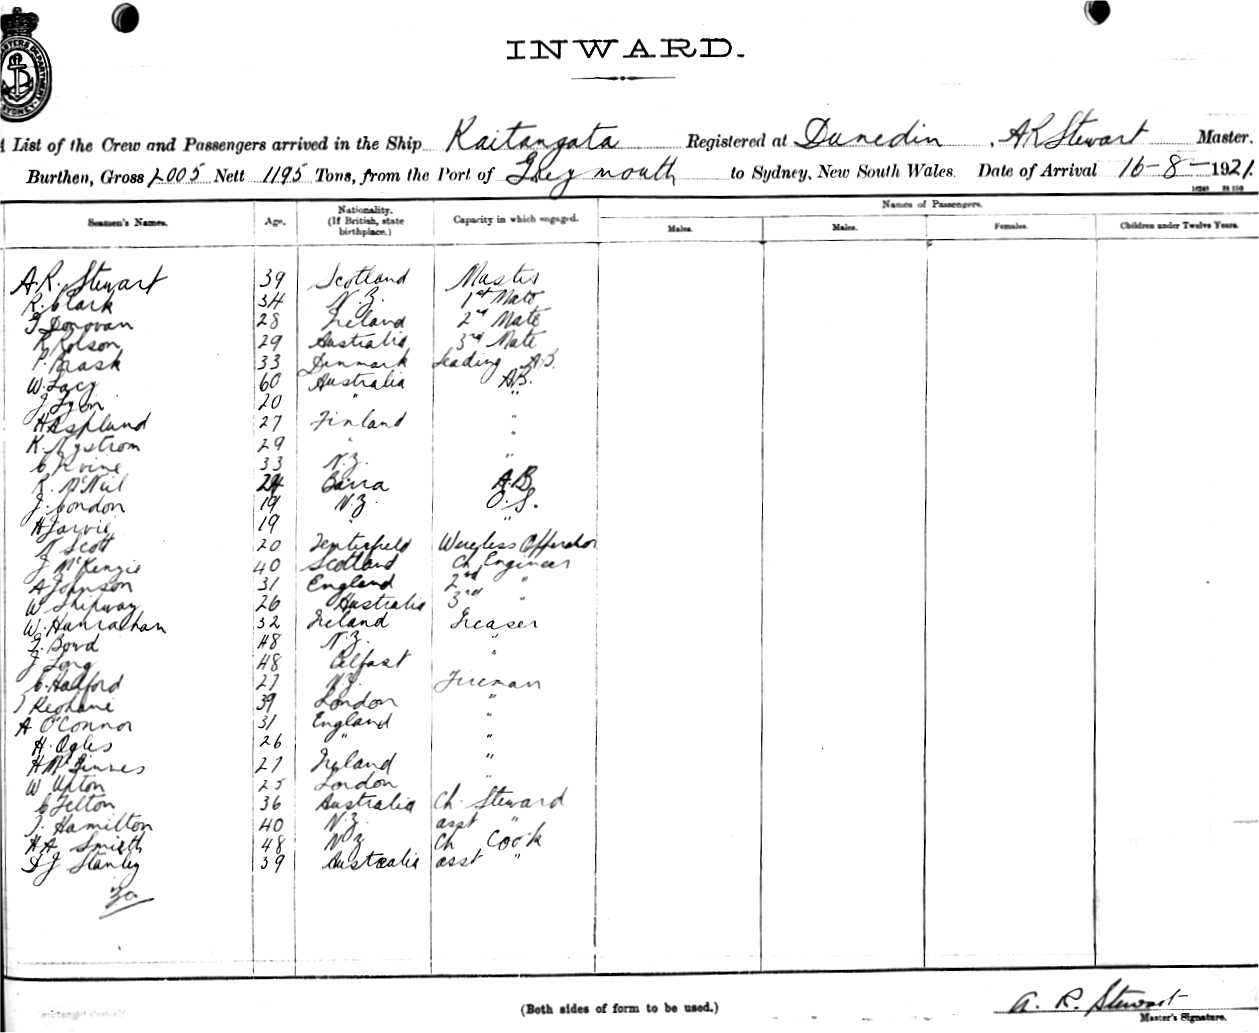 INWARD.
List of the Crew and Passengers arrived in the Ship Kaitangata Registered at Dunedin, A R Stewart Master.
Burthen, Gross 2005 Nett 1195 Tons, from the Port of Greymouth to Sydney, New South Wales. Date of Arrival 16-8-1921.
Seamen's Names. Age. Nationality. (If British, state birthplace.) Capacity in which engaged. Names of Passengers.
Males. Males. Females. Children under Twelve Years.
A. R. Stewart 39 Scotland Master
R. Clark 34 N.Z. 1st Mate
Donovan 28 Ireland 2nd Mate
R Rolson 29 Australia 3rd Mate
P. Brask 33 Denmark Leading A.B.
W. Lacy 60 Australia A.B.
J. Lyon 20 " "
H Asplund 27 Finland "
K. Nystrom 29 " "
C Irvine 33 N.Z. "
R. McNeil 24 Barra A.B.
J. Condon 19 N.Z. O.S.
H Jarvie 19 " "
N Scott 20 Tenterfield Wireless Operator
J McKenzie 40 Scotland Ch Engineer
A Johnson 31 England 2nd "
W Shipway 26 Australia 3rd "
W. Hanrahan 32 Ireland Greaser
Bowd 48 N.Z. "
J Long 48 Belfast
C. Halford 27 N.Z. Fireman
Keohane 39 London "
A O'Connor 31 England "
H. Ogles 26 " "
H McGinnes 27 Ireland "
W Upton 25 London "
C Felton 36 Australia Ch. Steward
T. Hamilton 40 N.Z. asst "
H A Smith 48 N Z Ch Cook
J Stanley 39 Australia asst "
30
(Both sides of form to be used.)
A. R. Stewart
Master's Signature.